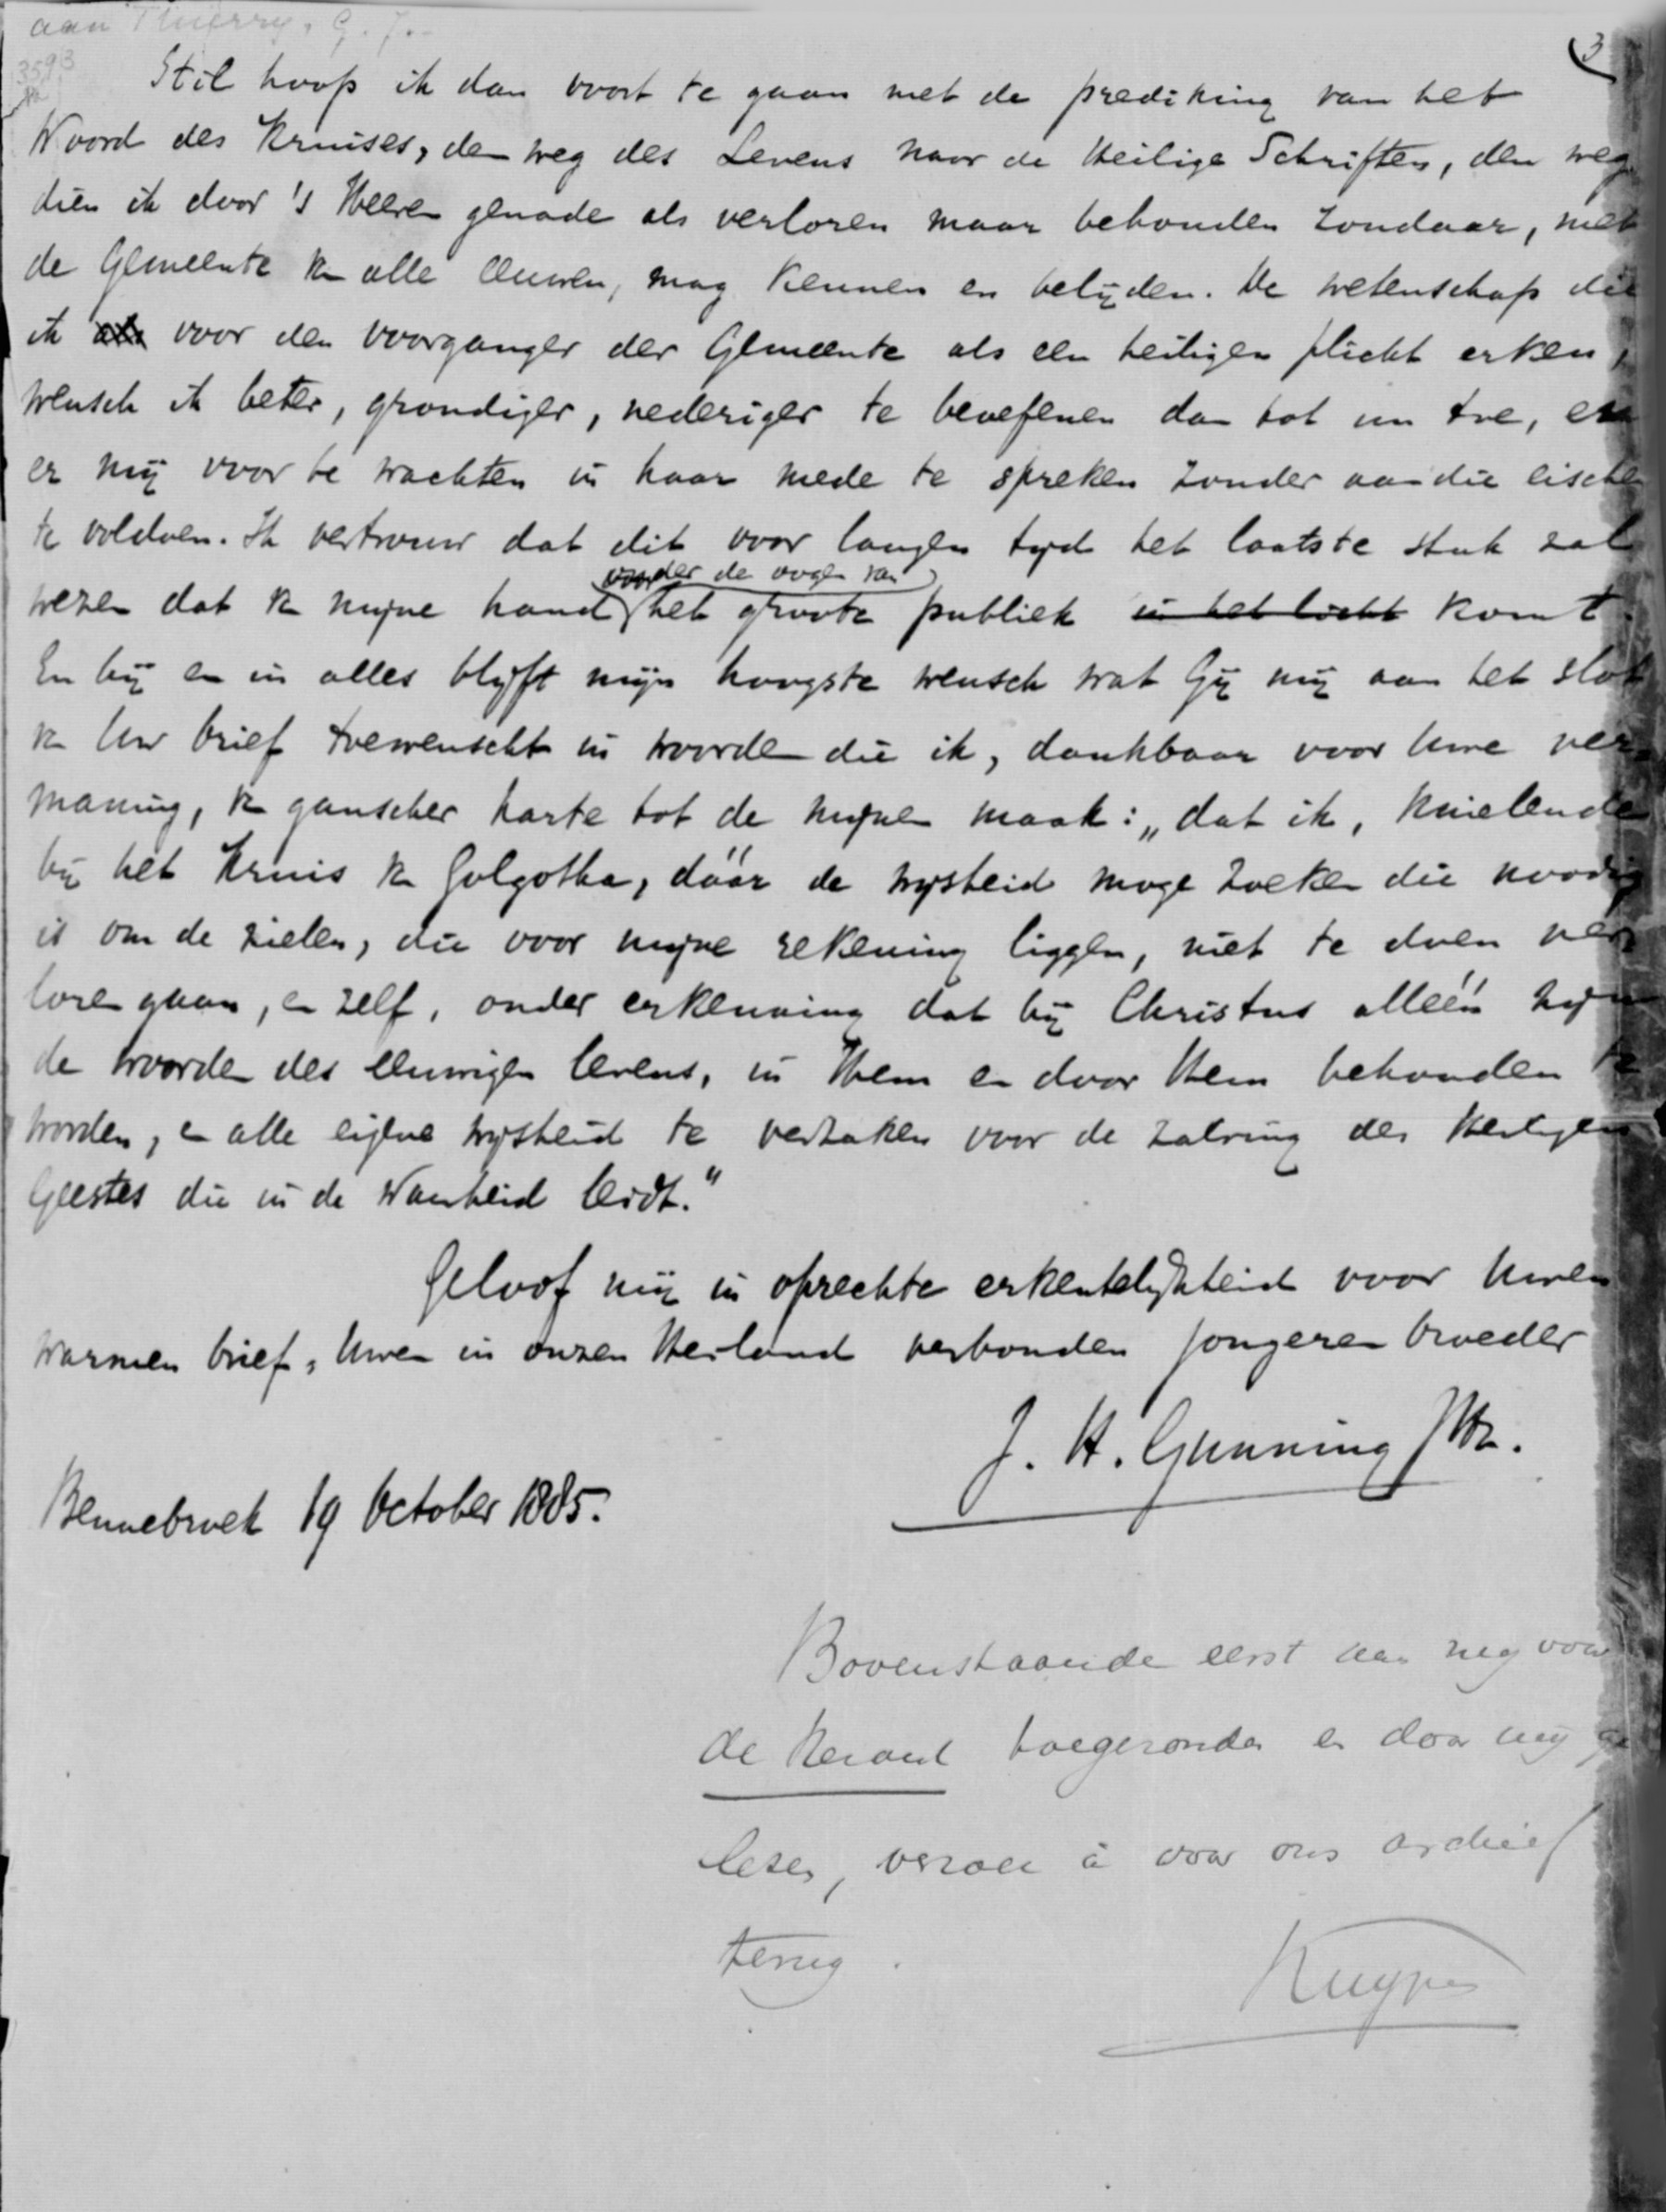 aan Thierry, G. J.
3593
3
Stil hoop ik dan voort te gaan met de prediking van het
Woord des Kruises, den weg des Levens naar de Heilige Schriften, den weg
dien ik door 's Heeren genade als verloren maar behouden zondaar, met
de Gemeente v. alle eeuwen, mag kennen en belijden. De wetenschap die
ik als voor den voorganger der Gemeente als een heiligen plicht erken,
wensch ik beter, grondiger, nederiger te beoefenen dan tot nu toe, en
er mij voor te wachten in haar mede te spreken zonder aan die eischen
te voldoen. Ik vertrouw dat dit voor langen tijd het laatste stuk zal
onder de oogen van
wezen dat v. mijne hand het groote publiek in het licht komt.
En bij en in alles blijft mijn hoogste wensch wat Gij mij aan het slot
v. Uw brief toewenscht in woorden die ik, dankbaar voor Uwe ver-
maning, v. ganscher harte tot de mijne maak: „dat ik, knielende
bij het Kruis v. Golgotha, dáár de wijsheid moge zoeken die noodig
is om de zielen, die voor mijne rekening liggen, niet te doen ver-
loren gaan, en zelf, onder erkenning dat bij Christus alléén zijn
de woorden des eeuwigen levens, in Hem en door Hem behouden te
worden, en alle eigene wijsheid te verzaken voor de zalving des Heiligen
Geestes die in de Waarheid leidt."
Geloof mij in oprechte erkentelijkheid voor Uwen
warmen brief, Uwen in onzen Heiland verbonden jongeren broeder
J. H. Gunning JHz.
Bennebroek 19 October 1885.
Bovenstaande eerst aan mij voor
de Heraut toegezonden en door mij ge
lezen, voor ons archief
terug.
Kuyper